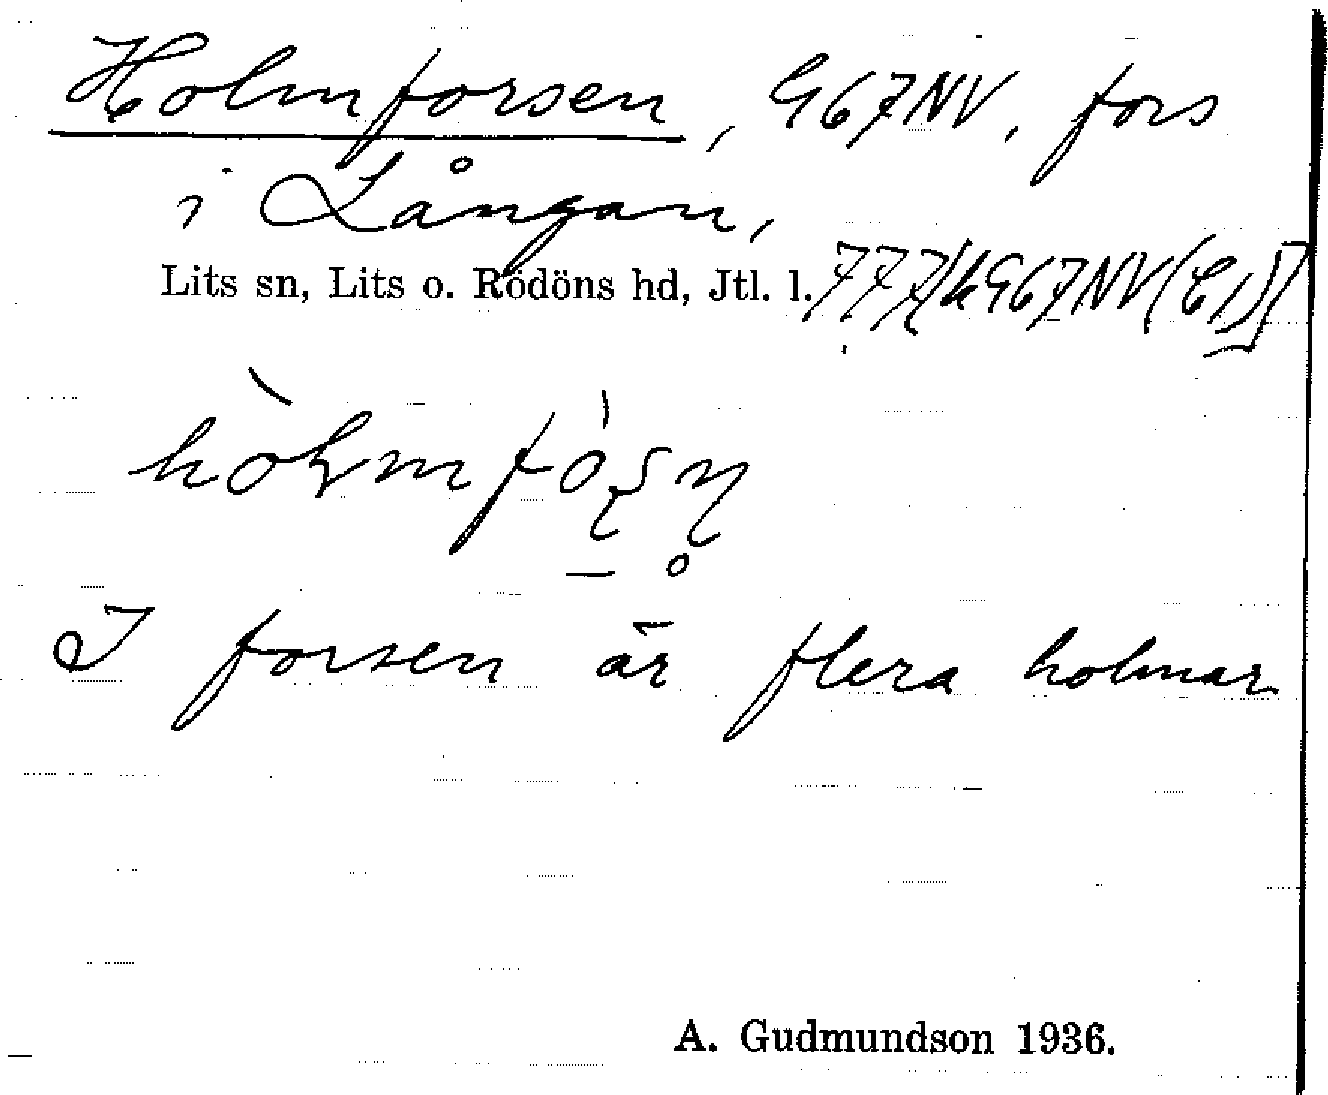 Holmforsen, G67NV, fors
i Långan,
Lits sn, Lits o. Rödöns hd, Jtl. l.
I forsen är flera holmar
A. Gudmundson 1936.